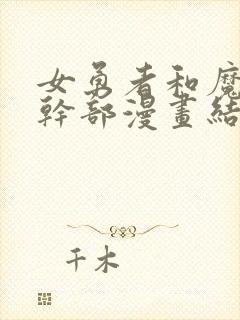 女勇者和魔
幹部漫畫結
千木